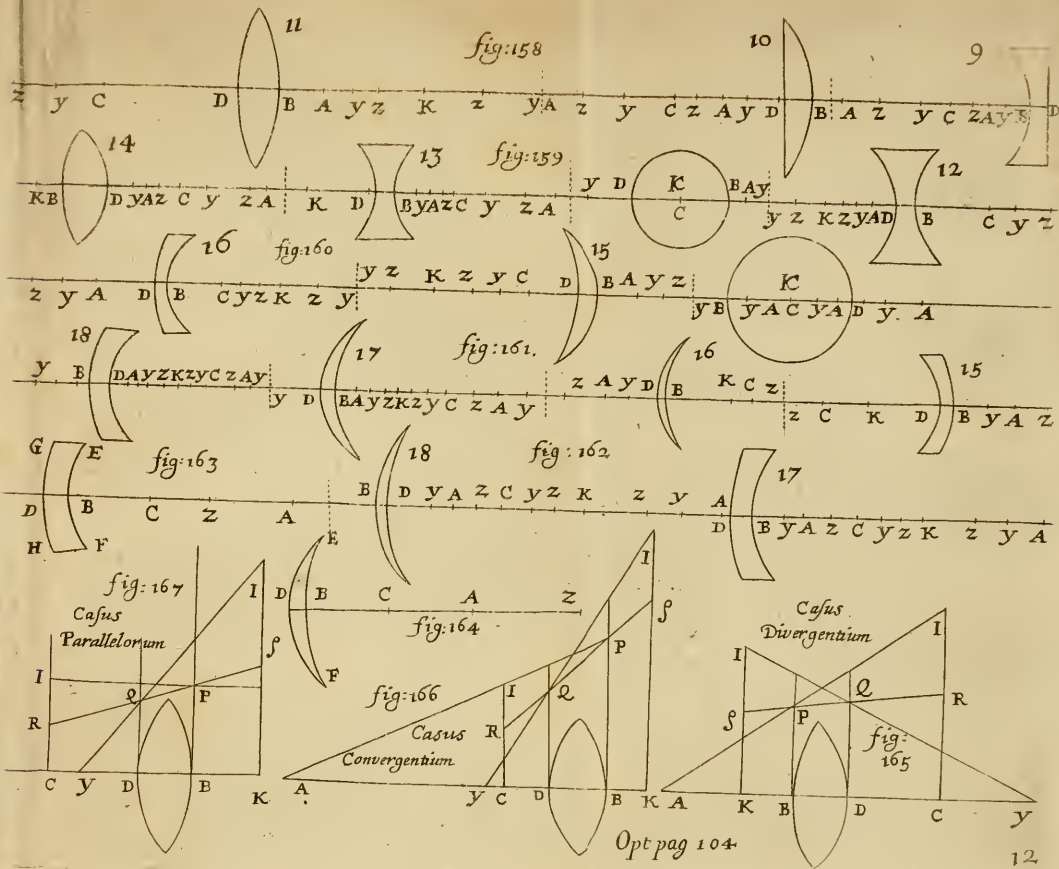 11 fig:158 10 9
z y C D B A y z K z y A z y C z A y D B A z y C z A y B D
14 13 fig:159 12
K B D y A z C y z A K D B y A z C y z A y D K C B A y y z K z y A D B C y z
16 fig:160 15
z y A D B C y z K z y y z K z y C D B A y z y B K y A C y A D y A
18 17 fig:161. 16 15
y B D A y z K z y C z A y y D B A y z K z y C z A y z A y D B K C z z C K D B y A z
G E fig:163 18 fig:162 17
D B C z A B D y A z C y z K z y A D B y A z C y z K z y A
H F
fig:167
Casus
Parallelorum
I ſ I R Q P C y D B K
E D B C A z
fig:164
F
fig:166
Casus
Convergentium
I ſ I R Q P A y C D B K
Casus
Divergentium
I I ſ P Q R
fig:
165
A K B D C y
Opt pag 104
12